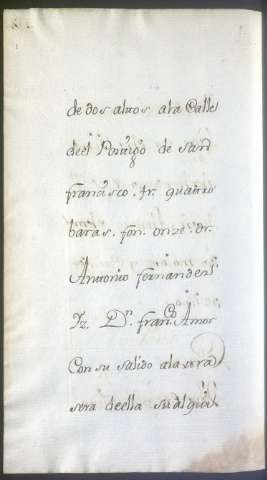 de dos altos a la Calle
deel Portigo de San
francisco. fr. quatro
baras. fon. onze. dr.
Antonio fernandez
Iz. Dn. franco. Amor
Con su salido a la tra
sera de ella su alquil